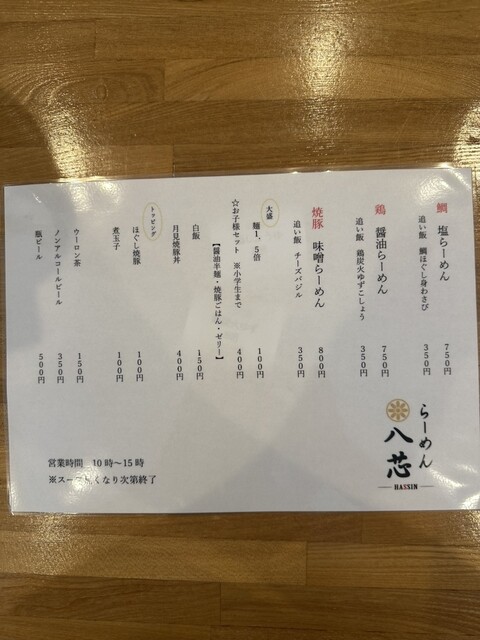 鯛 塩らーめん 750円
追い飯 鯛ほぐし身わさび 350円
鶏 醤油らーめん 750円
追い飯 鶏炭火ゆずこしょう 350円
焼豚 味噌らーめん 800円
追い飯 チーズバジル 350円
大盛
麺1，5倍 100円
☆お子様セット ※小学生まで 400円
【醤油半麺・焼豚ごはん・ゼリー】
白飯 150円
月見焼豚丼 400円
トッピング
ほぐし焼豚 100円
煮玉子 100円
ウーロン茶 150円
ノンアルコールビール 350円
瓶ビール 500円
らーめん
八芯
HASSIN
営業時間 10時～15時
※スープ無くなり次第終了